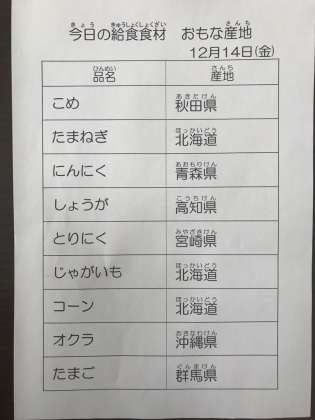 今日の給食食材 おもな産地
12月14日(金)
品名 産地
こめ 秋田県
たまねぎ 北海道
にんにく 青森県
しょうが 高知県
とりにく 宮崎県
じゃがいも 北海道
コーン 北海道
オクラ 沖縄県
たまご 群馬県